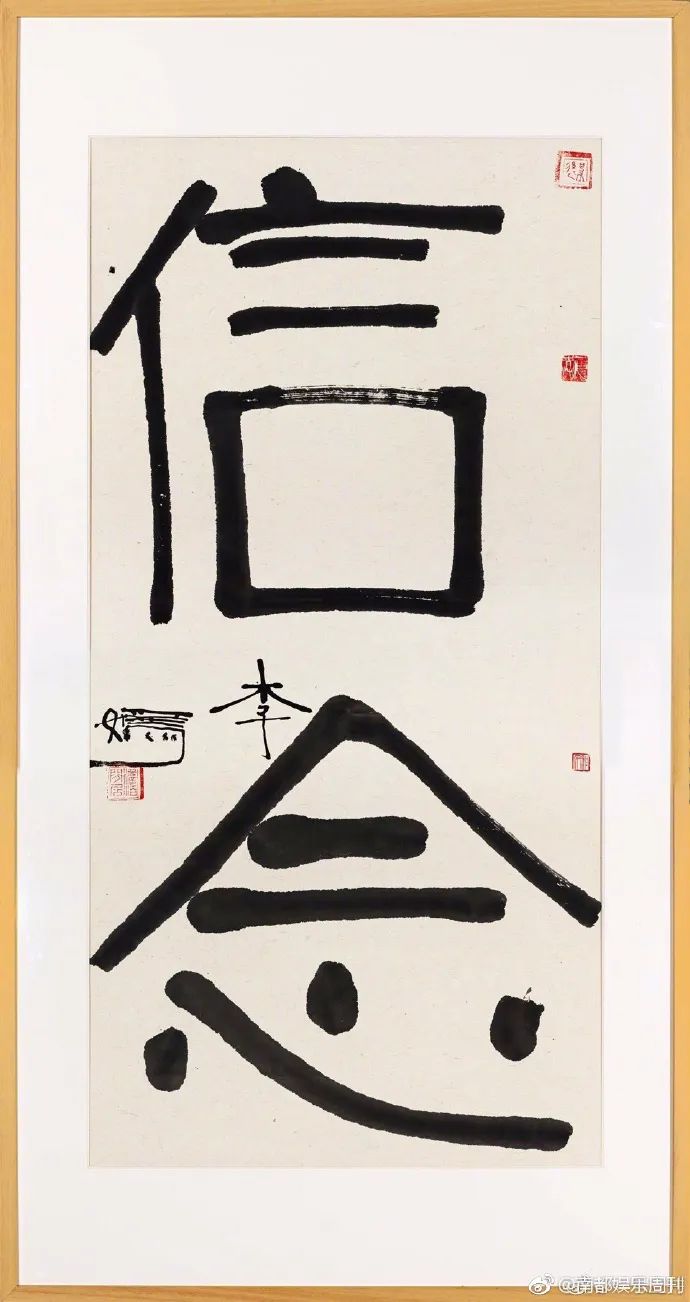 信
念
李
@南都娱乐周刊